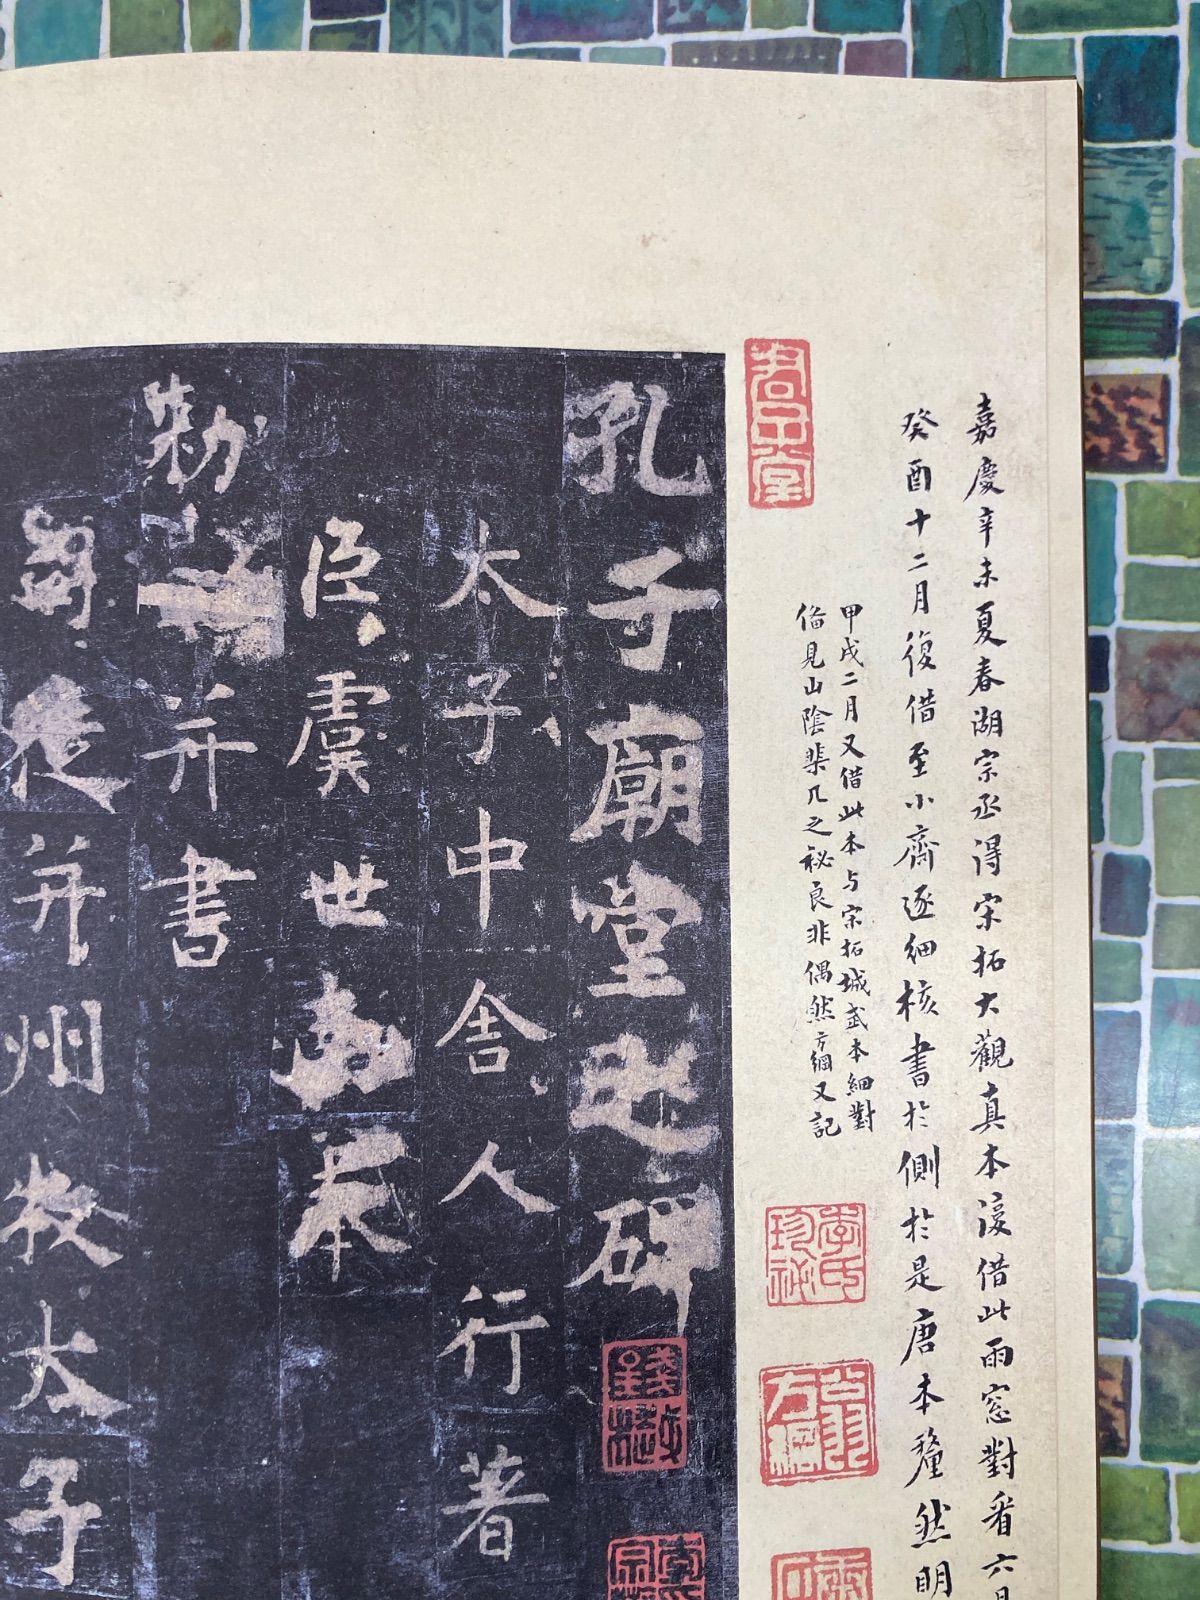 嘉慶辛未夏春湖宗丞得宋拓大觀真本渡借此雨窓對看六月
癸酉十二月復借至小齋逐細核書於側於是唐本釐然明
甲戌二月又借此本与宋拓城武本細對
偹見山陰棐几之秘良非偶然方綱又記
李氏珍祕
翁方綱
孔子廟堂之碑
太子中舍人行著
臣虞世南奉
勑
并書
司徒并州牧太子